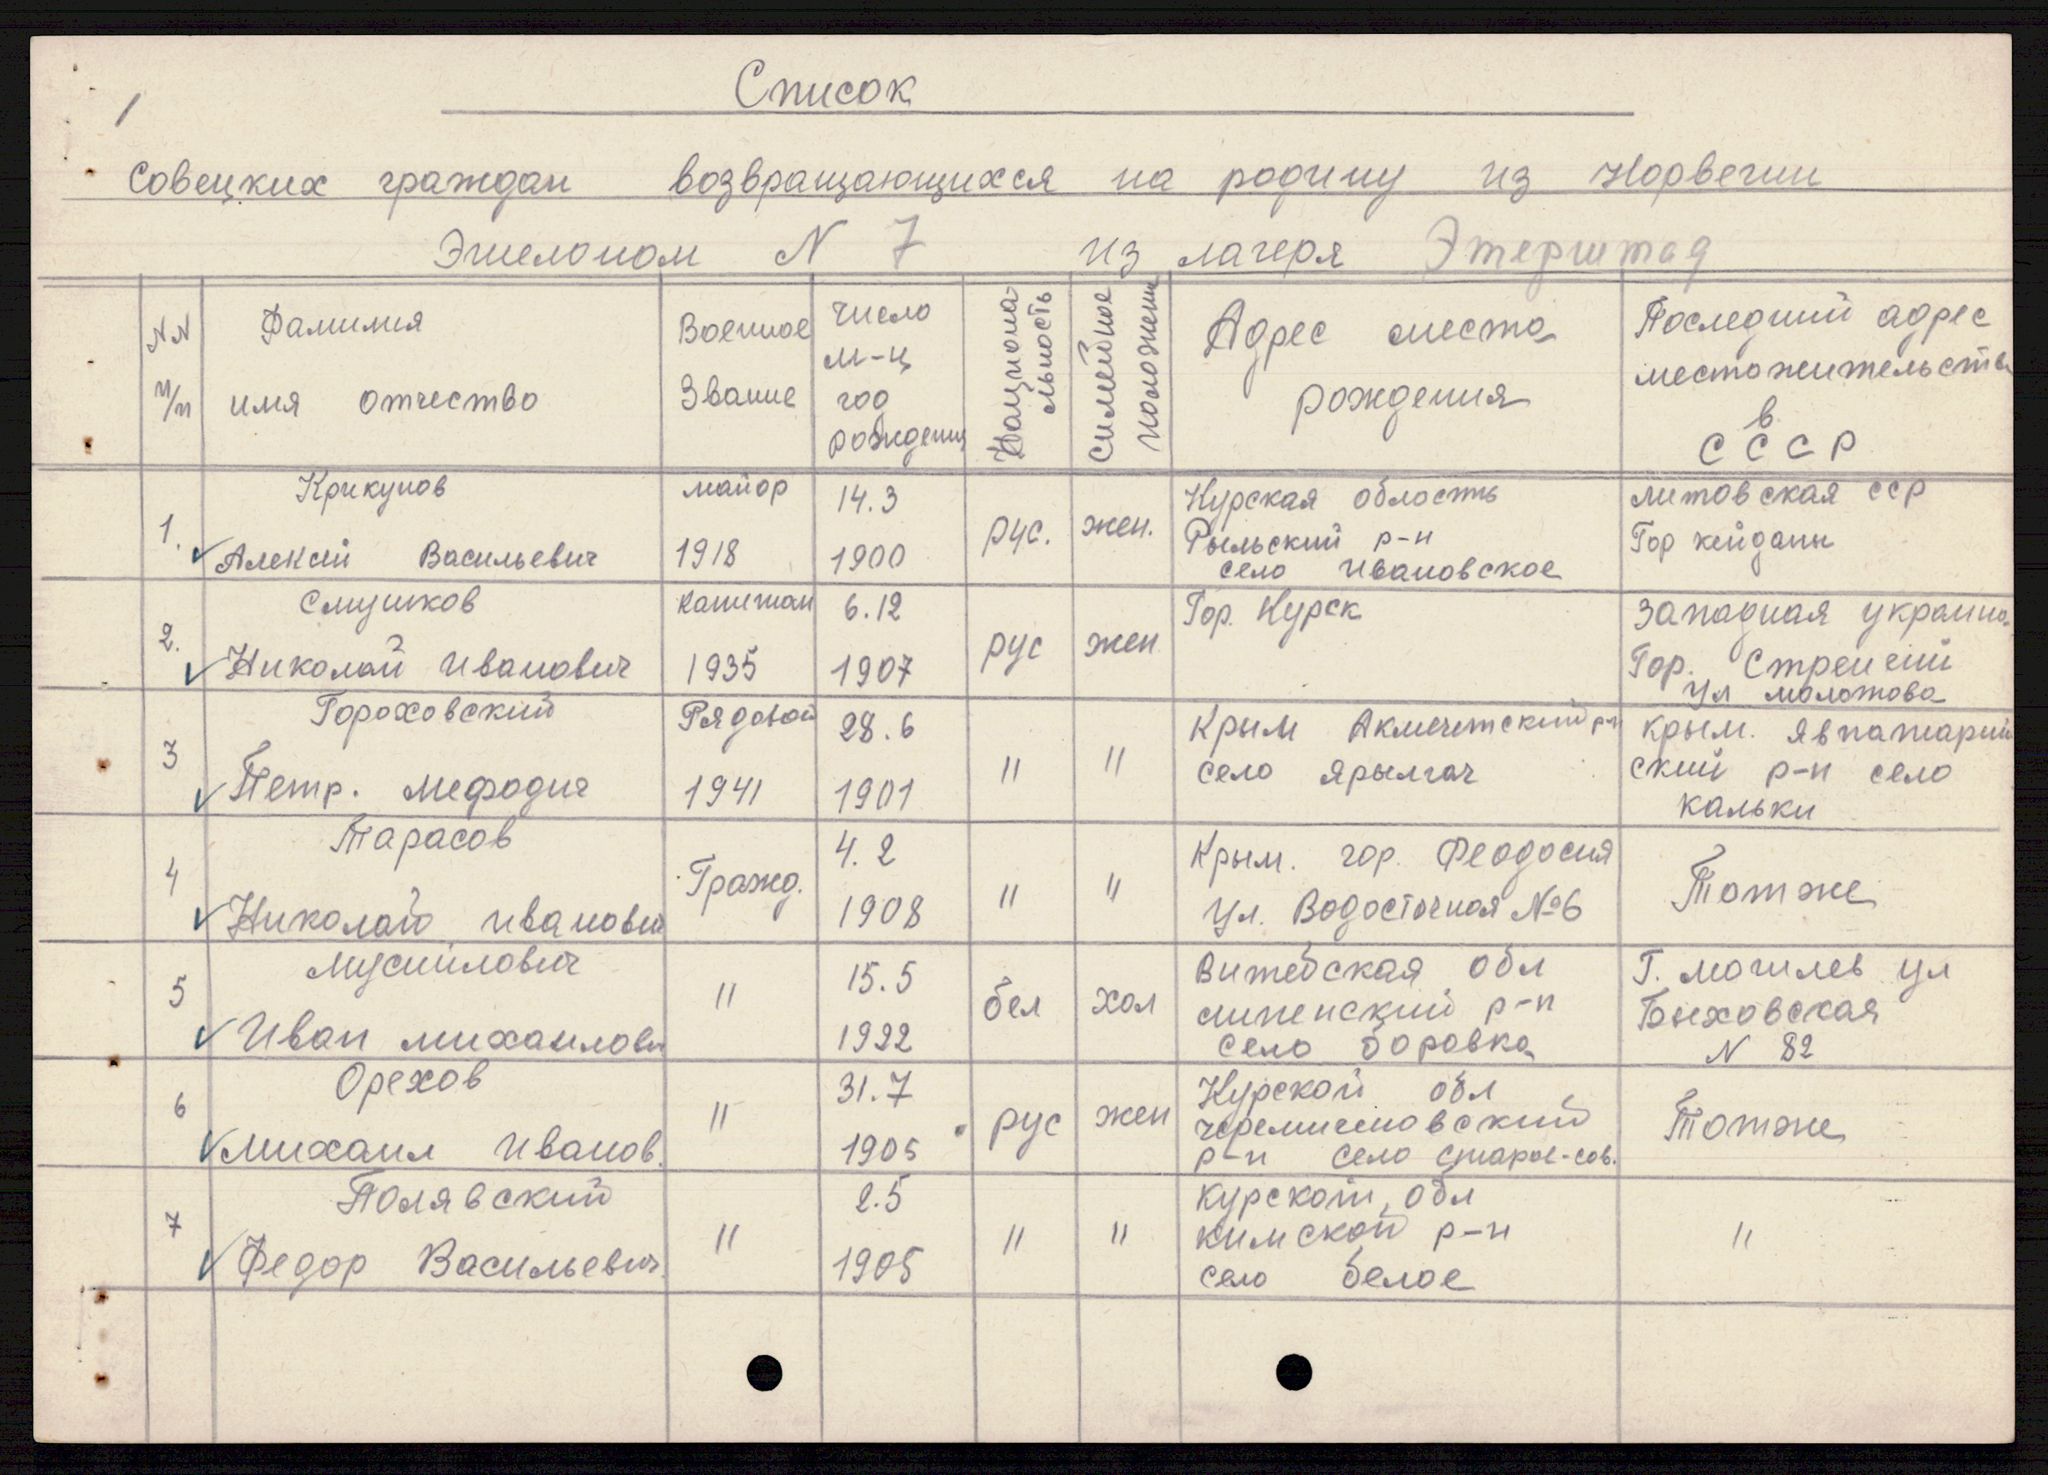 1
Список
Совецких граждан возвращающихся на родину из Норвегии
Эшелоном N 7 из лагеря Этерштад
NN п/п
Фамилия имя отчество
Военное Звание
Число м-ц год рождения
Национальность
Симейное положении
Адрес места рождения
Последний адрес местожительства в СССР
1. Крикунов
Алексей Васильевич
майор
1918
14.3
1900
рус.
жен.
Курская область
Рыльский р-н
село Ивановское
литовская сср
Гор кейданы
2. Смушков
Николай Иванович
капитан
1935
6.12
1907
рус
жен
Гор. Курск
Западная украина
Гор. Стрений
ул молотова
3 Гороховский
Петр. мефодич
Рядовой
1941
28.6
1901
"
"
Крым Акмечетский р-н
село ярылгач
крым. явпатарий
ский р-н село
кальки
4 Тарасов
Николай иванович
Гражд.
4.2
1908
"
"
Крым. гор. Феодосия
ул. Водосточная №6
Тотже
5
Иван михаилович
"
15.5
1922
бел
хол
Витебская обл
р-н
село боровка
Г. могилев ул
Быховская
N 82
6 Орехов
михаил Иванов.
"
31.7
1905
рус
жен
Курской обл
черемисиновский
р-н село старое-сов.
Тотже
7 Полявский
Федор Васильевич.
"
2.5
1905
"
"
курской, обл
кимской р-н
село белое
"